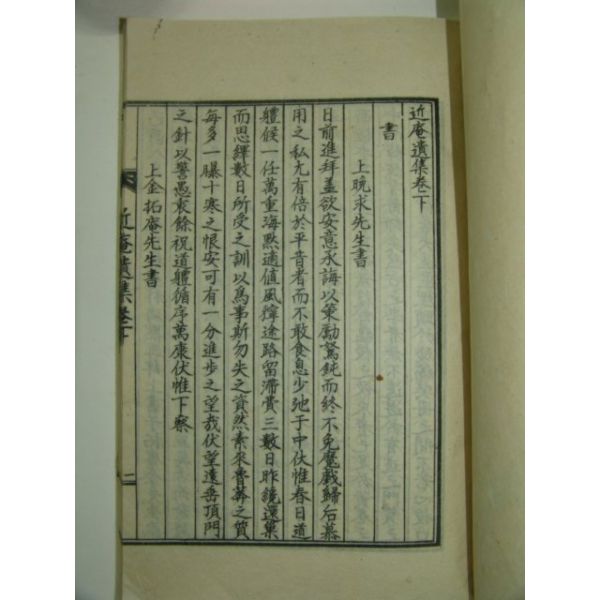 近庵遺集卷下
書
上晩求先生書
日前進拜盖欲安意承誨以策勵駑鈍而終不免魔戱歸后慕
用之私尤有倍於平昔者而不敢食息少弛于中伏惟春日道
軆候一任萬重海默適値風擇途路留滯費三數日昨鏡還巢
而思繹數日所受之訓以爲事斯勿失之資然素來魯莽之質
每多一曝十寒之恨安可有一分進步之望哉伏望遠垂頂門
之針以警愚衷餘祝道軆循序萬康伏惟下察
上金拓庵先生書
近庵遺集卷下 一